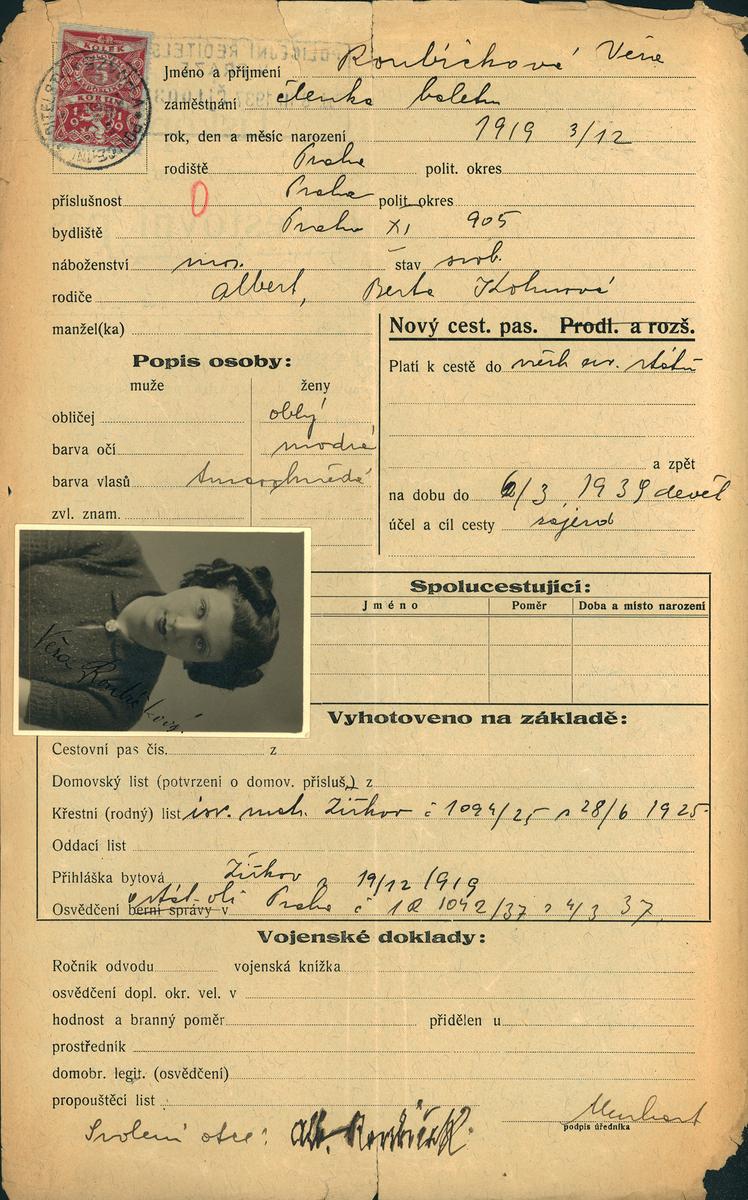 ČR
KOLEK
5
KORUN
1919
Jméno a příjmení Roubíčková Věra
zaměstnání členka baletu
rok, den a měsíc narození 1919 3/12
rodiště Praha polit. okres
příslušnost 0 Praha polit. okres
bydliště Praha XI 905
náboženství stav svob.
rodiče Albert, Berta Kohnová
manžel(ka)
Nový cest. pas. Prodl. a rozš.
Popis osoby:
muže ženy
obličej oblý
barva očí modré
barva vlasů tmavohnědé
zvl. znam.
Platí k cestě do všech ev. států
a zpět
na dobu do 6/3 1939 devět
účel a cíl cesty zájezd
Věra Roubíčková
Spolucestující:
Jméno Poměr Doba a místo narození
Vyhotoveno na základě:
Cestovní pas čís. z
Domovský list (potvrzení o domov. přísluš.) z
Křestní (rodný) list isr. mat. Žižkov č 1094/25 z 28/6 1925
Oddací list
Přihláška bytová Žižkov z 19/12 1919
Osvědčení berní správy v Praha č 1042/37 z 4/3 37
Vojenské doklady:
Ročník odvodu vojenská knížka
osvědčení dopl. okr. vel. v
hodnost a branný poměr přidělen u
prostředník
domobr. legit. (osvědčení)
propouštěcí list
podpis úředníka
Svolení otce: Alb. Roubíček